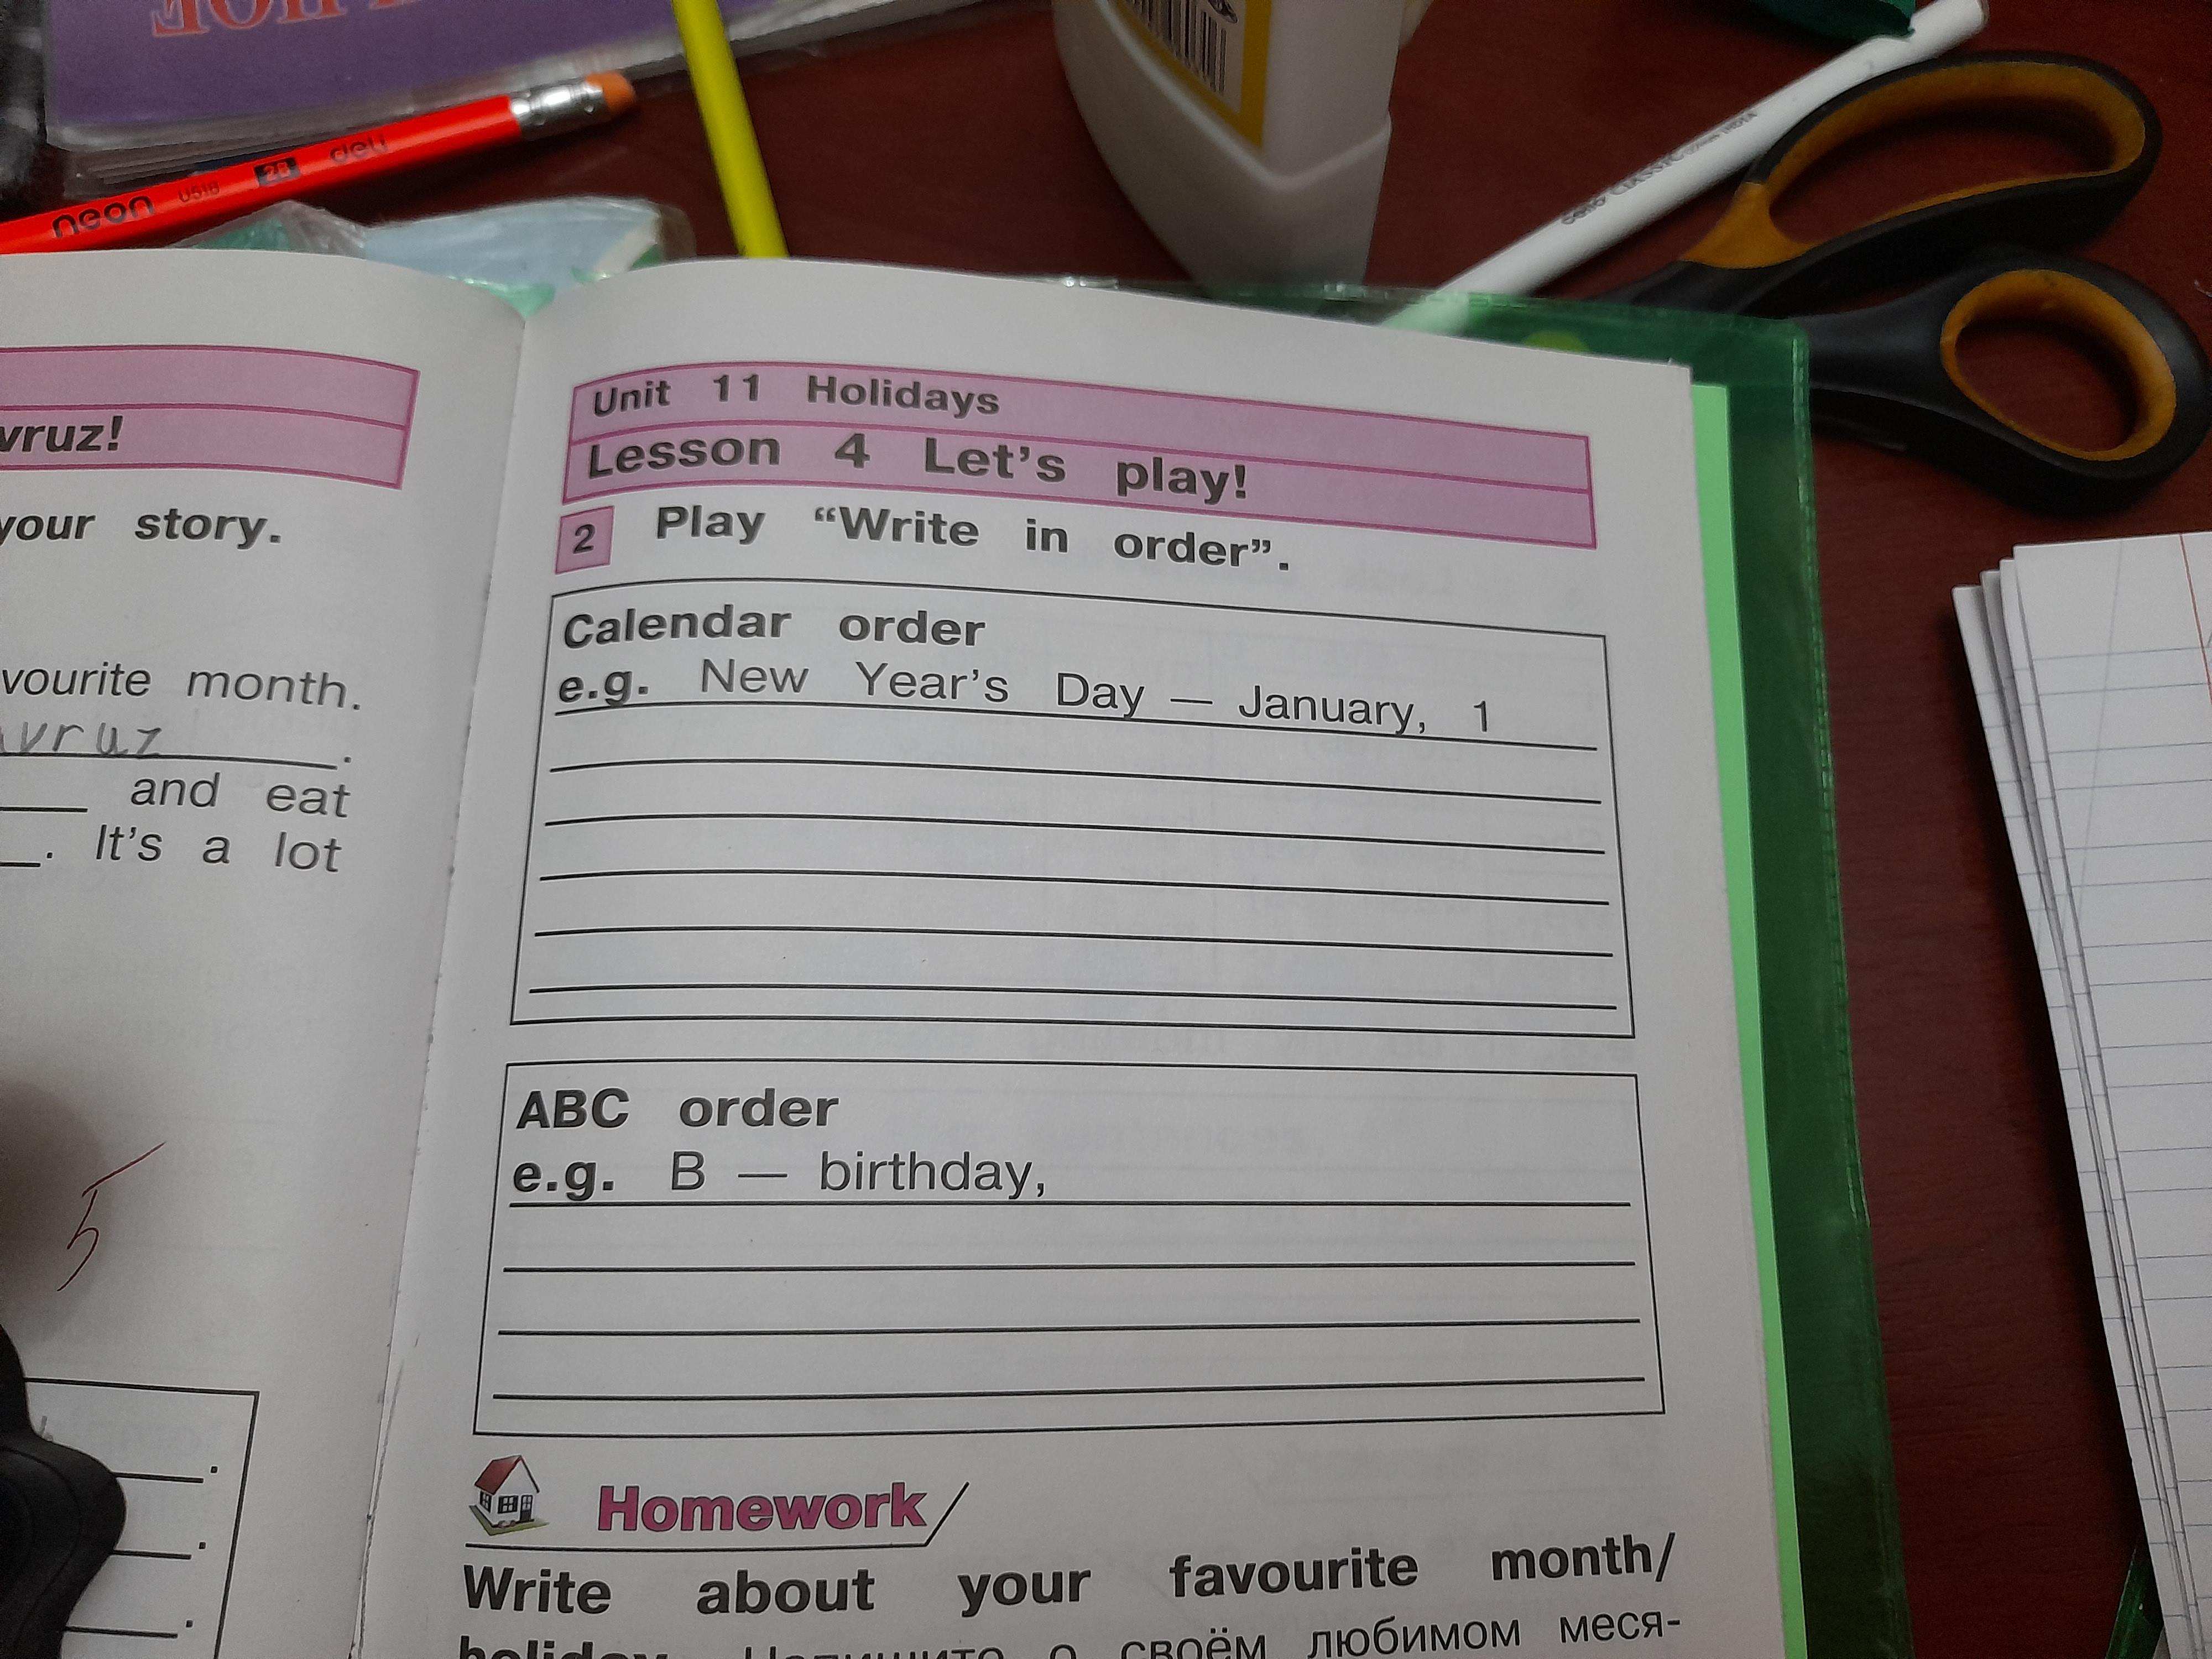 neon U51б 2B deli
cello CLASSIC
vruz!
your story.
vourite month.
vruz.
and eat
. It's a lot
5
Unit 11 Holidays
Lesson 4 Let's play!
2 Play “Write in order”.
Calendar order
e.g. New Year's Day — January, 1
ABC order
e.g. B — birthday,
Homework
Write about your favourite month/
holiday. Напишите о своём любимом меся-